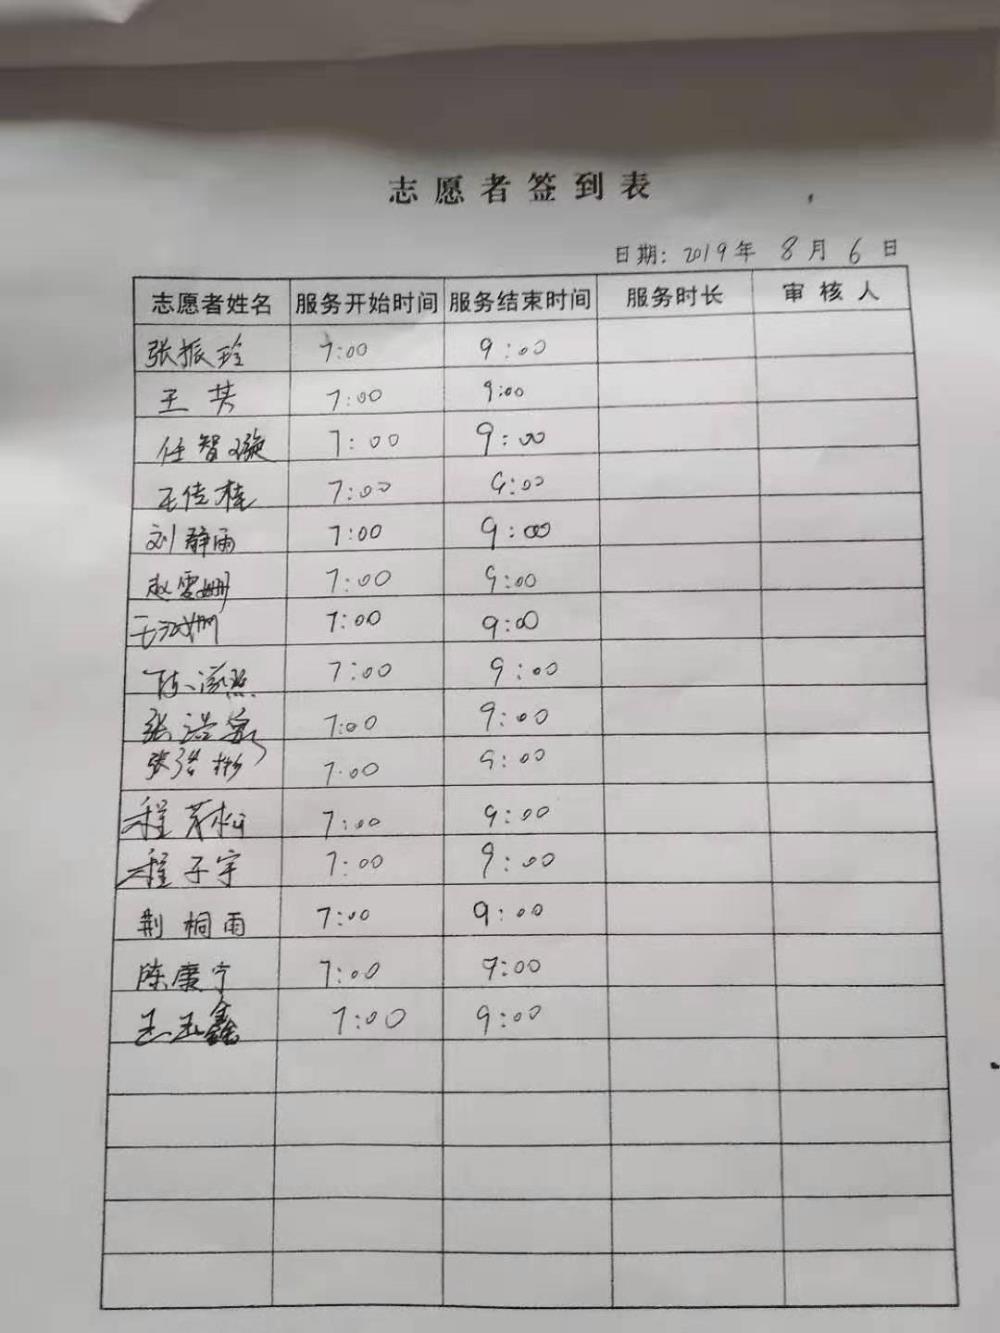 志愿者签到表
日期: 2019年 8月 6日
志愿者姓名 服务开始时间 服务结束时间 服务时长 审核人
张振玲 7:00 9:00
王其 7:00 9:00
任智璇 7:00 9:00
王佳桂 7:00 9:00
刘静雨 7:00 9:00
赵雪姗 7:00 9:00
7:00 9:00
7:00 9:00
张浩家 7:00 9:00
张浩彬 7:00 9:00
程茂松 7:00 9:00
程子宇 7:00 9:00
荆桐雨 7:00 9:00
陈康宁 7:00 9:00
王玉鑫 7:00 9:00